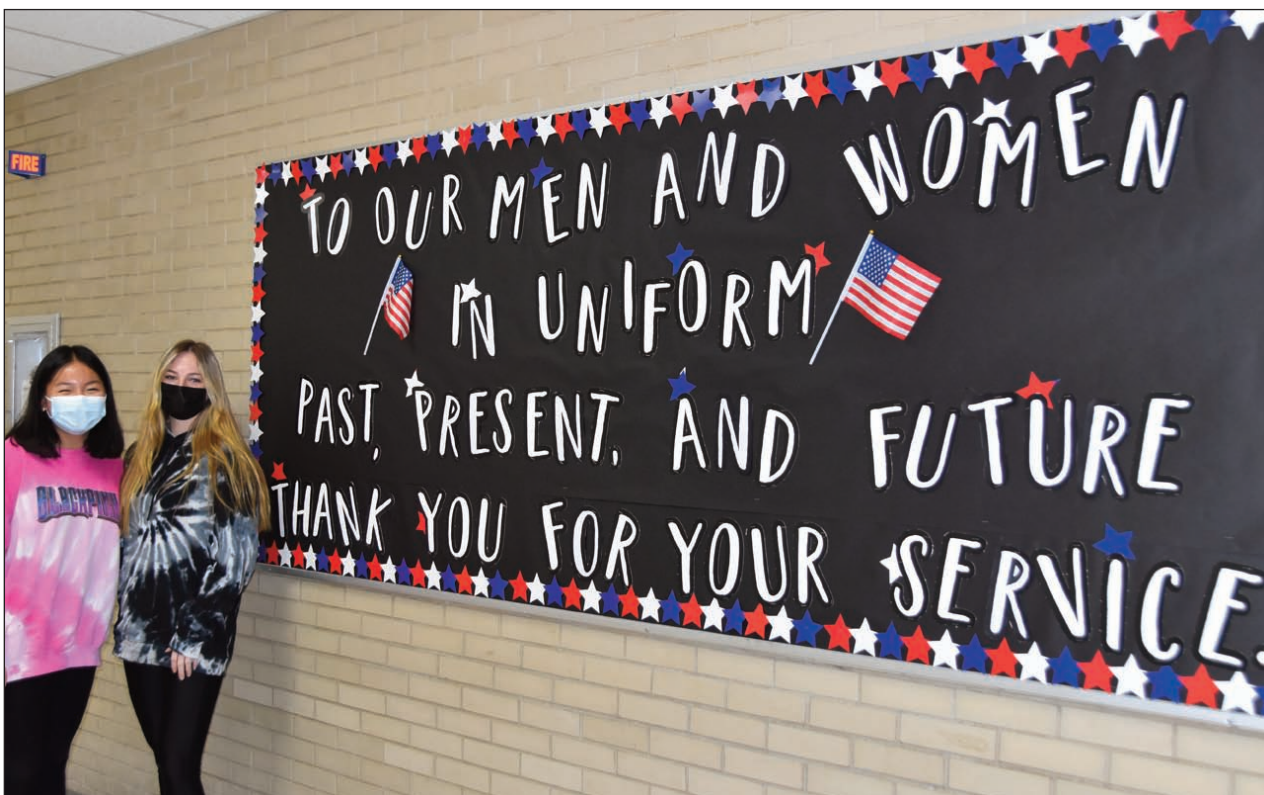 FIRE
TO OUR MEN AND WOMEN
IN UNIFORM
PAST, PRESENT, AND FUTURE
THANK YOU FOR YOUR SERVICE.
BLACKPINK